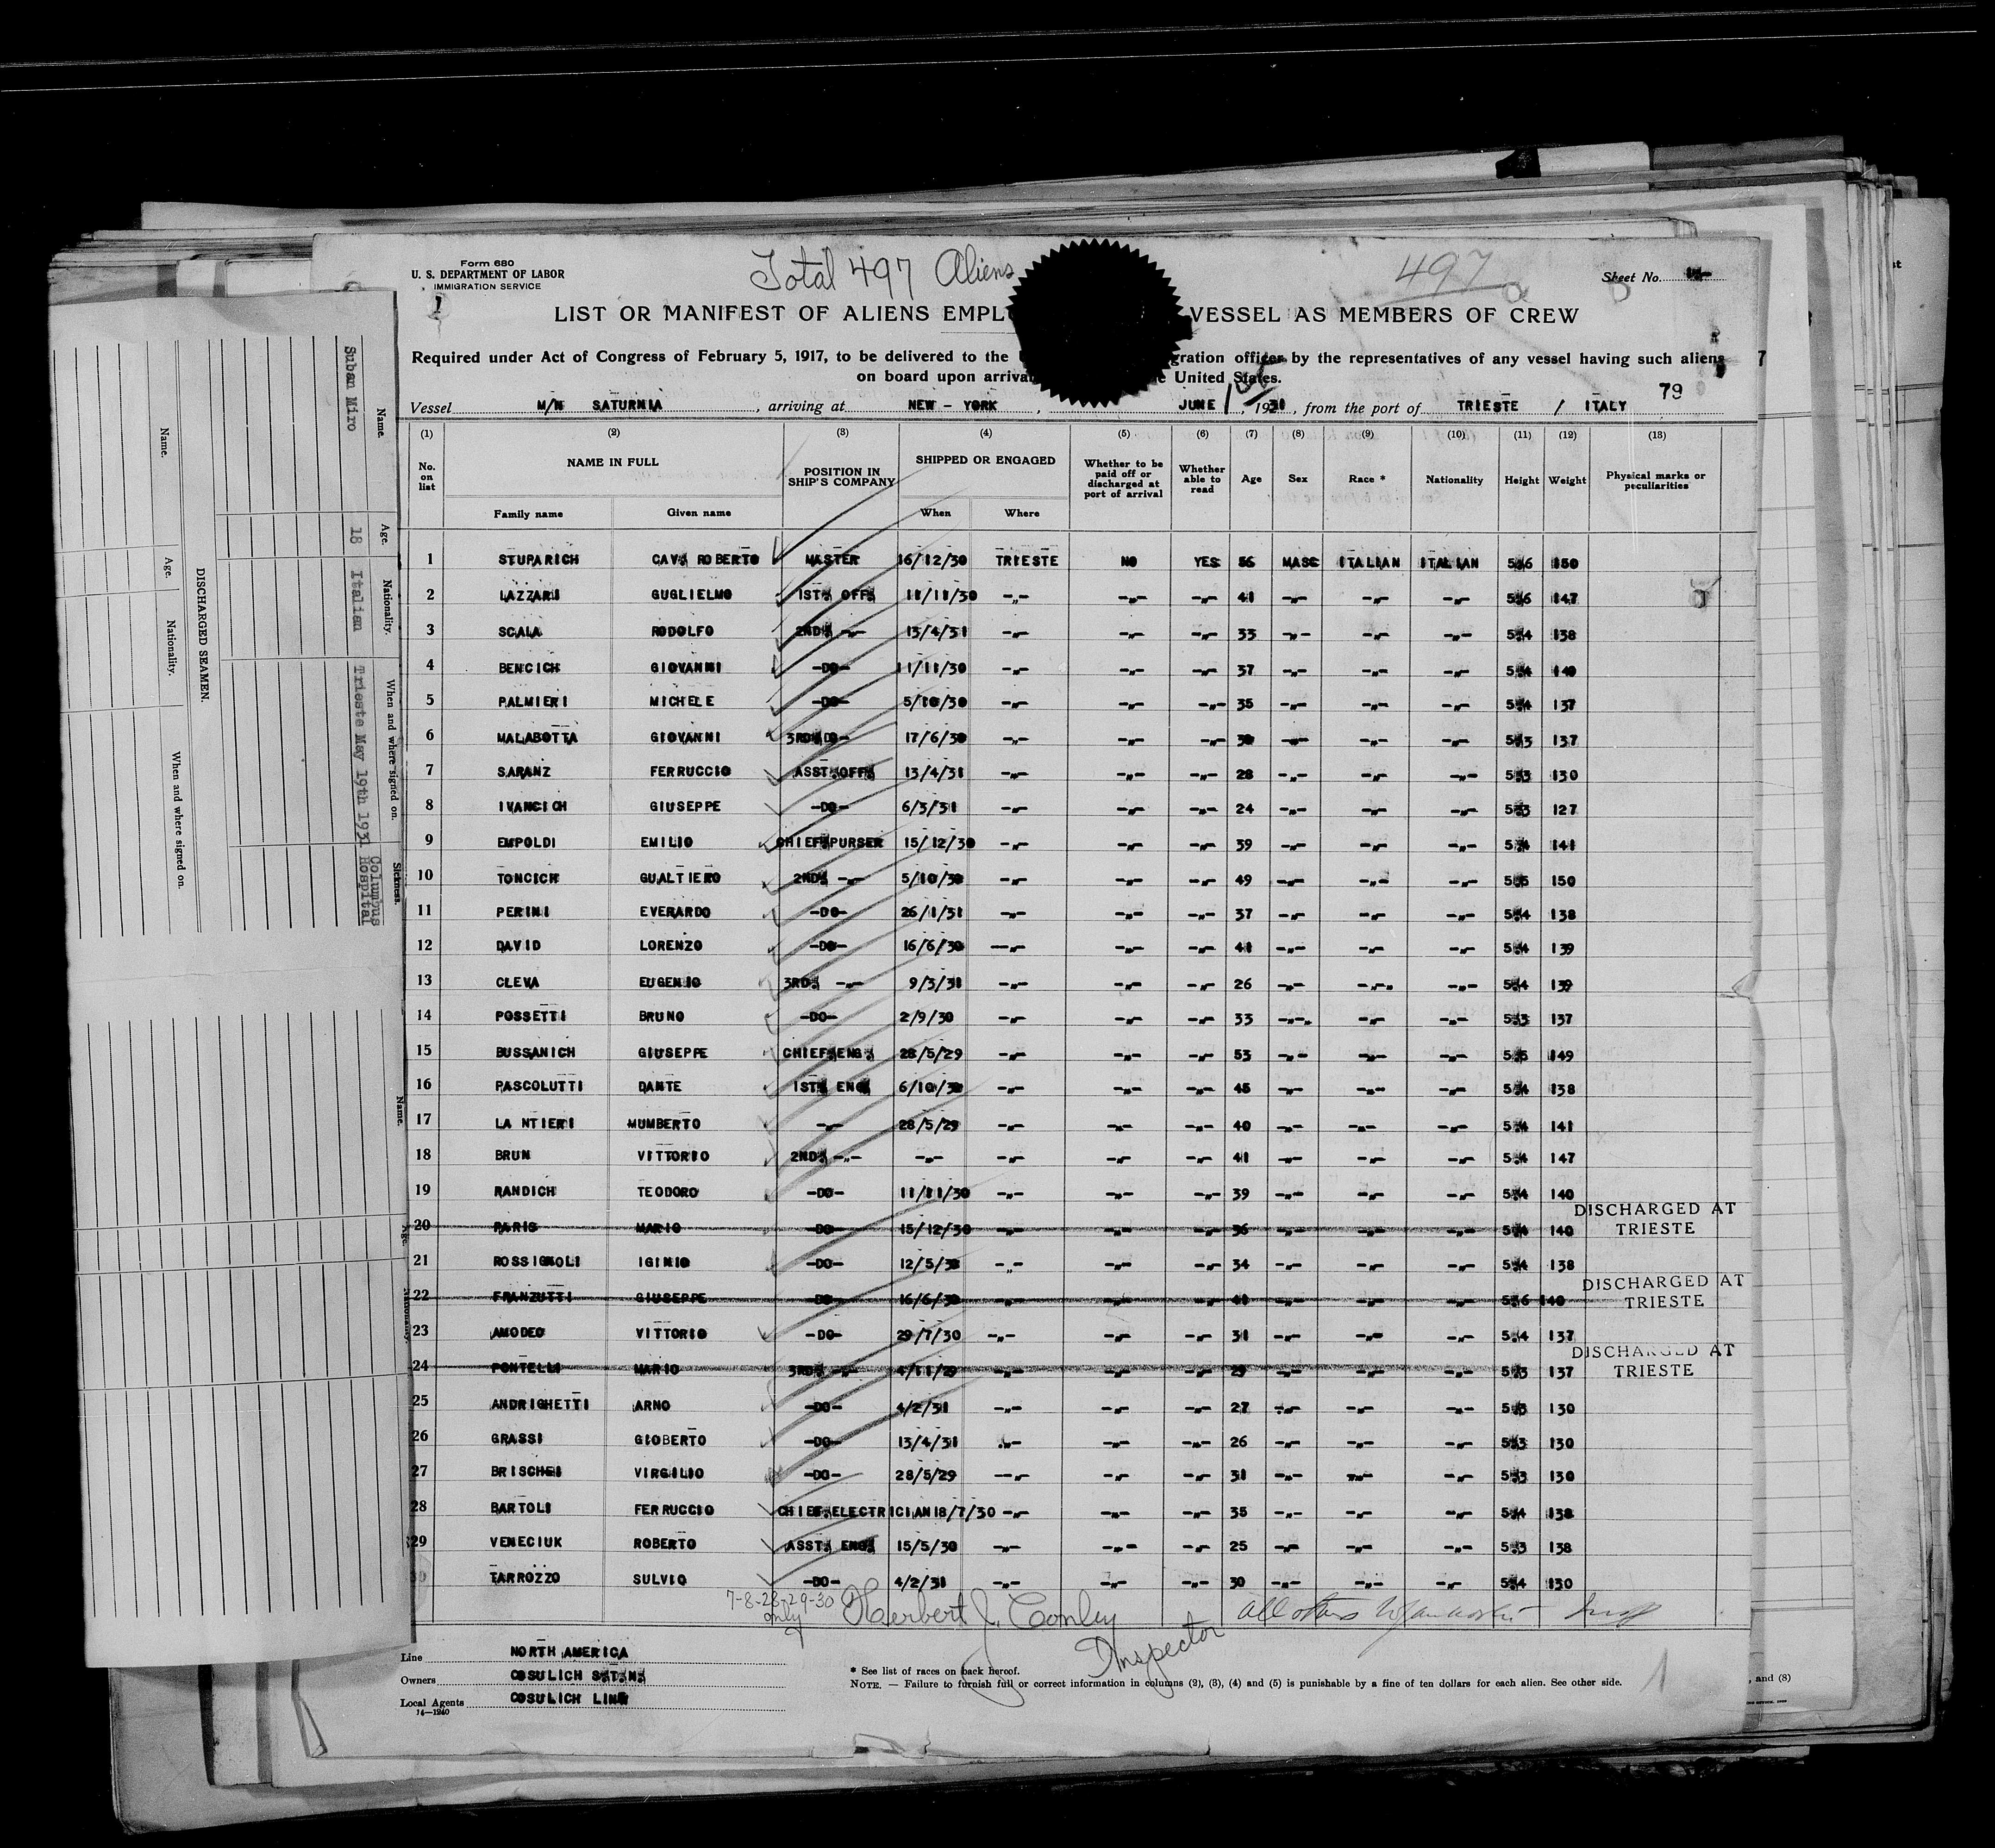 Form 680
U. S. DEPARTMENT OF LABOR
IMMIGRATION SERVICE
Total 497 Aliens
497
Sheet No.
LIST OR MANIFEST OF ALIENS EMPL VESSEL AS MEMBERS OF CREW
Required under Act of Congress of February 5, 1917, to be delivered to the gration officer by the representatives of any vessel having such aliens
on board upon arrival United States.
79
Vessel M/N SATURNIA , arriving at NEW - YORK , JUNE , 1931 , from the port of TRIESTE / ITALY
(1) (2) (3) (4) (5) (6) (7) (8) (9) (10) (11) (12) (13)
No. on list NAME IN FULL POSITION IN SHIP'S COMPANY SHIPPED OR ENGAGED Whether to be paid off or discharged at port of arrival Whether able to read Age Sex Race * Nationality Height Weight Physical marks or peculiarities
Family name Given name When Where
1 STUPARICH CAV. ROBERTO MASTER 16/12/30 TRIESTE NO YES 56 MASC ITALIAN ITALIAN 5.6 150
2 LAZZARI GUGLIELMO 1ST. OFF. 11/11/30 -"- -"- -"- 41 -"- -"- -"- 5.6 147
3 SCALA RODOLFO 2ND. -"- 13/4/31 -"- -"- -"- 33 -"- -"- -"- 5.4 138
4 BENCICH GIOVANNI -DO- 11/11/30 -"- -"- -"- 37 -"- -"- -"- 5.4 140
5 PALMIERI MICHELE -DO- 5/10/30 -"- -"- -"- 35 -"- -"- -"- 5.4 137
6 MALABOTTA GIOVANNI 3RD. DO- 17/6/30 -"- -"- -"- 30 -"- -"- -"- 5.3 137
7 SARANZ FERRUCCIO ASST. OFF. 13/4/31 -"- -"- -"- 28 -"- -"- -"- 5.3 130
8 IVANCICH GIUSEPPE -DO- 6/3/31 -"- -"- -"- 24 -"- -"- -"- 5.3 127
9 EMPOLDI EMILIO CHIEF PURSER 15/12/30 -"- -"- -"- 39 -"- -"- -"- 5.4 141
10 TONCICH GUALTIERO 2ND. -"- 5/10/30 -"- -"- -"- 49 -"- -"- -"- 5.5 150
11 PERINI EVERARDO -DO- 26/1/31 -"- -"- -"- 37 -"- -"- -"- 5.4 138
12 DAVID LORENZO -DO- 16/6/30 -"- -"- -"- 41 -"- -"- -"- 5.4 139
13 CLEVA EUGENIO 3RD. -"- 9/3/31 -"- -"- -"- 26 -"- -"- -"- 5.4 139
14 POSSETTI BRUNO -DO- 2/9/30 -"- -"- -"- 33 -"- -"- -"- 5.3 137
15 BUSSANICH GIUSEPPE CHIEF ENG. 28/5/29 -"- -"- -"- 53 -"- -"- -"- 5.5 149
16 PASCOLUTTI DANTE 1ST. ENG. 6/10/30 -"- -"- -"- 45 -"- -"- -"- 5.4 138
17 LANTIERI MUMBERTO -"- 28/5/29 -"- -"- -"- 40 -"- -"- -"- 5.4 141
18 BRUN VITTORIO 2ND. -"- -"- -"- -"- -"- 41 -"- -"- -"- 5.4 147
19 RANDICH TEODORO -DO- 11/11/30 -"- -"- -"- 39 -"- -"- -"- 5.4 140
20 PARIS MARIO -DO- 15/12/30 -"- -"- -"- 36 -"- -"- -"- 5.4 140 DISCHARGED AT TRIESTE
21 ROSSIGNOLI IGINIO -DO- 12/5/30 -"- -"- -"- 34 -"- -"- -"- 5.4 138
22 FRANZUTTI GIUSEPPE -DO- 16/6/30 -"- -"- -"- 41 -"- -"- -"- 5.6 140 DISCHARGED AT TRIESTE
23 AMODEO VITTORIO -DO- 29/7/30 -"- -"- -"- 31 -"- -"- -"- 5.4 137
24 PONTELLI MARIO 3RD. -"- 4/11/29 -"- -"- -"- 29 -"- -"- -"- 5.3 137 DISCHARGED AT TRIESTE
25 ANDRIGHETTI ARNO -DO- 4/2/31 -"- -"- -"- 27 -"- -"- -"- 5.3 130
26 GRASSI GIOBERTO -DO- 13/4/31 -"- -"- -"- 26 -"- -"- -"- 5.3 130
27 BRISCHEI VIRGILIO -DO- 28/5/29 -"- -"- -"- 31 -"- -"- -"- 5.3 130
28 BARTOLI FERRUCCIO CHIEF ELECTRICIAN 18/7/30 -"- -"- -"- 35 -"- -"- -"- 5.4 138
29 VENECIUK ROBERTO ASST. ENG. 15/5/30 -"- -"- -"- 25 -"- -"- -"- 5.3 138
30 TARROZZO SULVIO -DO- 4/2/31 -"- -"- -"- 30 -"- -"- -"- 5.4 130
7-8-28-29-30 only Herbert J. Conley Inspector All others
Line NORTH AMERICA
Owners COSULICH S.T.N.
Local Agents COSULICH LINE
14—1240
* See list of races on back hereof.
NOTE. — Failure to furnish full or correct information in columns (2), (3), (4) and (5) is punishable by a fine of ten dollars for each alien. See other side.
1
, and (8)
Name. Age. Nationality. When and where signed on. Sickness.
Suban Miro 18 Italian Trieste May 19th 1931 Columbus Hospital
DISCHARGED SEAMEN.
Name. Age. Nationality. When and where signed on.
Name.